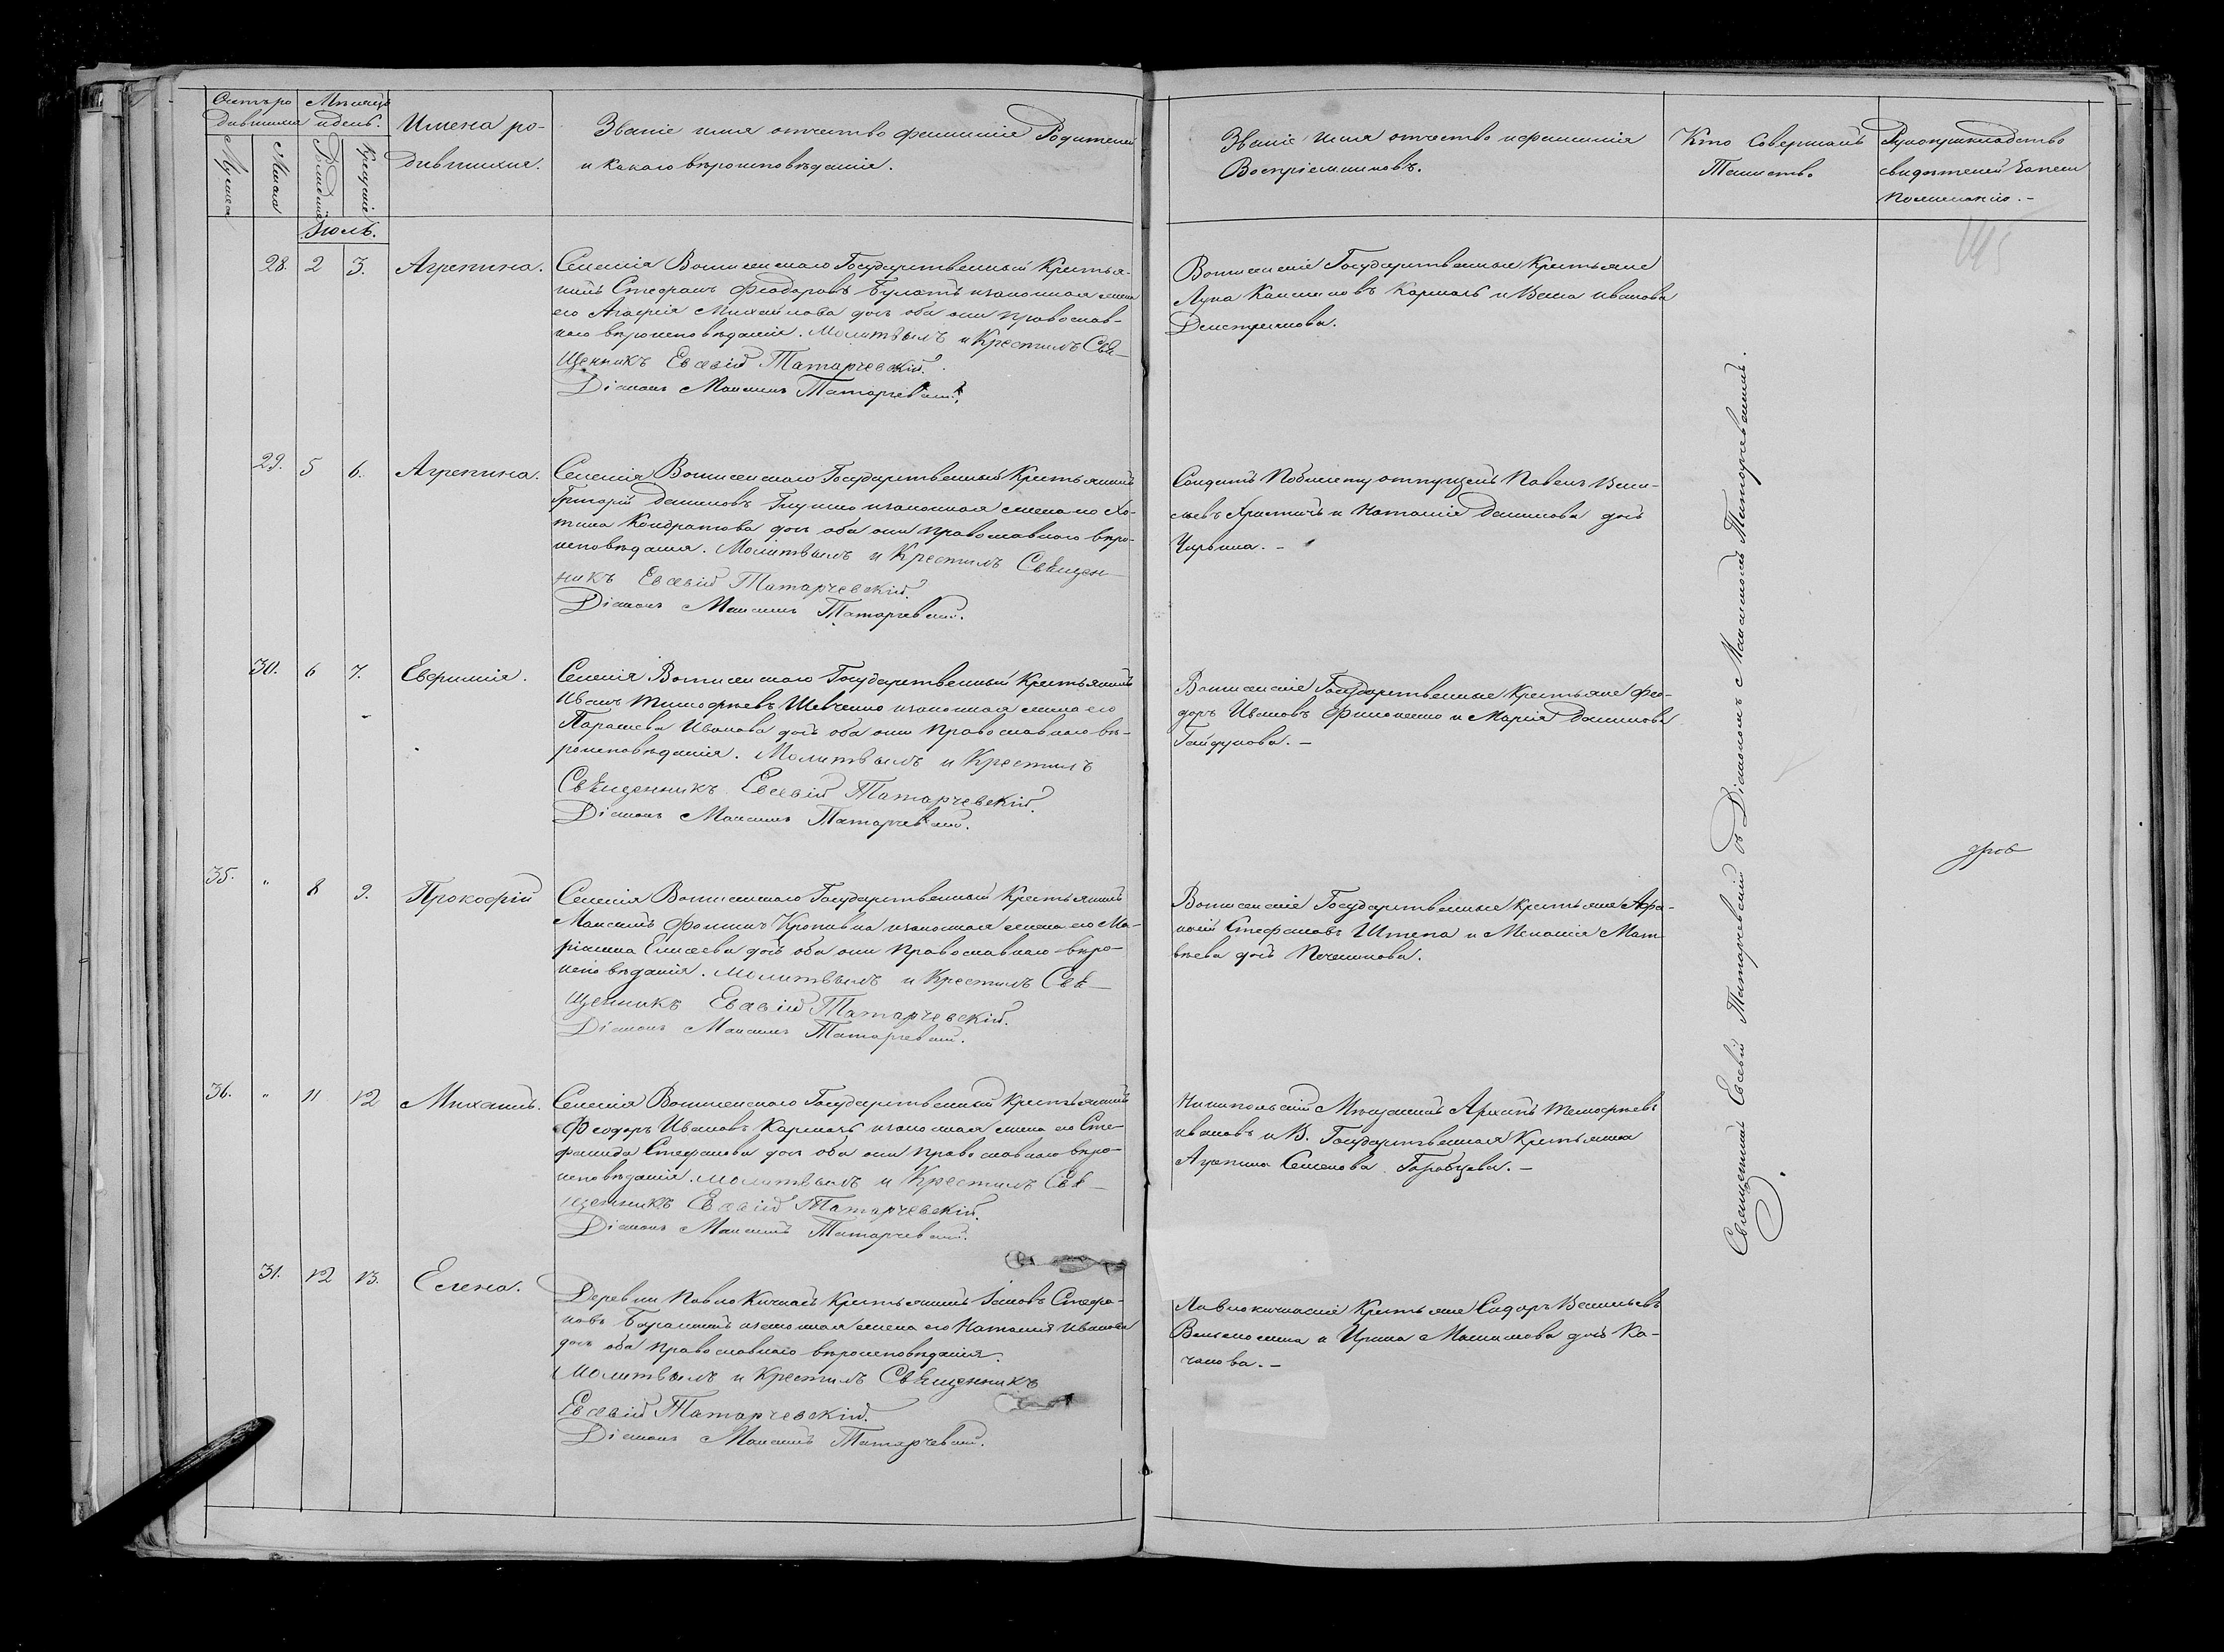 Счетъ ро-
дившихся
Мѣсяцъ
и день.
Имена ро-
дившихся.
Званіе имя отчество фамилія Родителей
и какого вѣроисповѣданія.
Званіе имя отчество и фамилія
Воспріемниковъ.
Кто Совершалъ
Таинство
Рукоприкладство
свидетелей
Мужска
Женска
Рожденія
Крещенія
Іюль.
28. 2 3. Агрепина.
Селенія Государственный Крестья-
нинъ Стефанъ Феодоровъ и законная жена
его Агафія Михайлова дочь оба они православ-
наго вѣроисповѣданія. Молитвилъ и Крестилъ Свѣ-
щенникъ Евсевій Татарчевскій.
Діаконъ Максимъ Татарчевскій.
Государственные Крестьяне
Лука и Васса Иванова
29. 5 6. Агрепина.
Селенія Государственный Крестьянинъ
Григорій Даниловъ и законная жена его Хо-
тина Кондратова дочь оба они православнаго вѣро-
исповѣданія. Молитвилъ и Крестилъ Свѣщен-
никъ Евсевій Татарчевскій.
Діаконъ Максимъ Татарчевскій.
Солдатъ Побилету отпущенъ Павелъ Васи-
льевъ и Наталія Данилова дочь
30. 6 7. Евфимія.
Селенія Государственный Крестьянинъ
Иванъ Тимофѣевъ Шевченко и законная жена его
Параскева Иванова дочь оба они Православнаго вѣ-
роисповѣданія. Молитвилъ и Крестилъ
Свѣщенникъ Евсевій Татарчевскій.
Діаконъ Максимъ Татарчевскій.
Государственные Крестьяне Фео-
доръ Ивановъ и Марія Данилова
Гайдукова. –
35. " 8 9. Прокофій
Селенія Государственный Крестьянинъ
Максимъ Фоминъ Кропивка и законная жена его Ма-
ріамна Елисеева дочь оба они Православнаго вѣро-
исповѣданія. Молитвилъ и Крестилъ Свѣ-
щенникъ Евсевій Татарчевскій.
Діаконъ Максимъ Татарчевскій.
Государственные Крестьяне Афа-
насій Стефановъ Штепа и Меланія Мат-
вѣева дочь
36. " 11 12 Михаилъ.
Селенія Государственный Крестьянинъ
Феодоръ Ивановъ и законная жена его Сте-
фанида Стефанова дочь оба они православнаго вѣро-
исповѣданія. Молитвилъ и Крестилъ Свѣ-
щенникъ Евсевій Татарчевскій.
Діаконъ Максимъ Татарчевскій.
Никопольскій Мѣщанинъ Тимофѣевъ
Ивановъ и В. Государственная Крестьянка
Агрепина Семенова –
31. 12 13. Елена.
Деревни Павло Кичкасъ Крестьянинъ Іаковъ Стефа-
новъ и законная жена его Наталія Иванова
дочь оба православнаго вѣроисповѣданія.
Молитвилъ и Крестилъ Свѣщенникъ
Евсевій Татарчевскій.
Діаконъ Максимъ Татарчевскій.
Павлокичкаскіе Крестьяне Сидоръ Васильевъ
и Ирина Максимова дочь Ка-
чанова. –
Священникъ Евсевій Татарчевскій съ Діакономъ Максимомъ Татарчевскимъ.